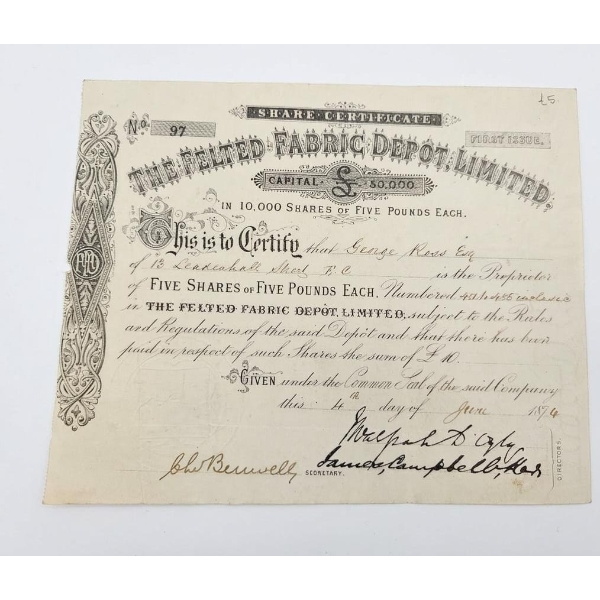 £5
SHARE CERTIFICATE
No. 97
FIRST ISSUE.
THE FELTED FABRIC DEPOT, LIMITED,
CAPITAL £ 50,000
IN 10,000 SHARES OF FIVE POUNDS EACH.
This is to Certify that George Ross Esq
of 13 Leadenhall Street E C is the Proprietor
of FIVE SHARES OF FIVE POUNDS EACH, Numbered inclusive
in THE FELTED FABRIC DEPOT, LIMITED, subject to the Rules
and Regulations of the said Depôt and that there has been
paid in respect of such Shares the sum of £ 10.
GIVEN under the Common Seal of the said Company
this 4th day of June 1874
Chs Benwell
SECRETARY.
James Campbell
DIRECTORS.